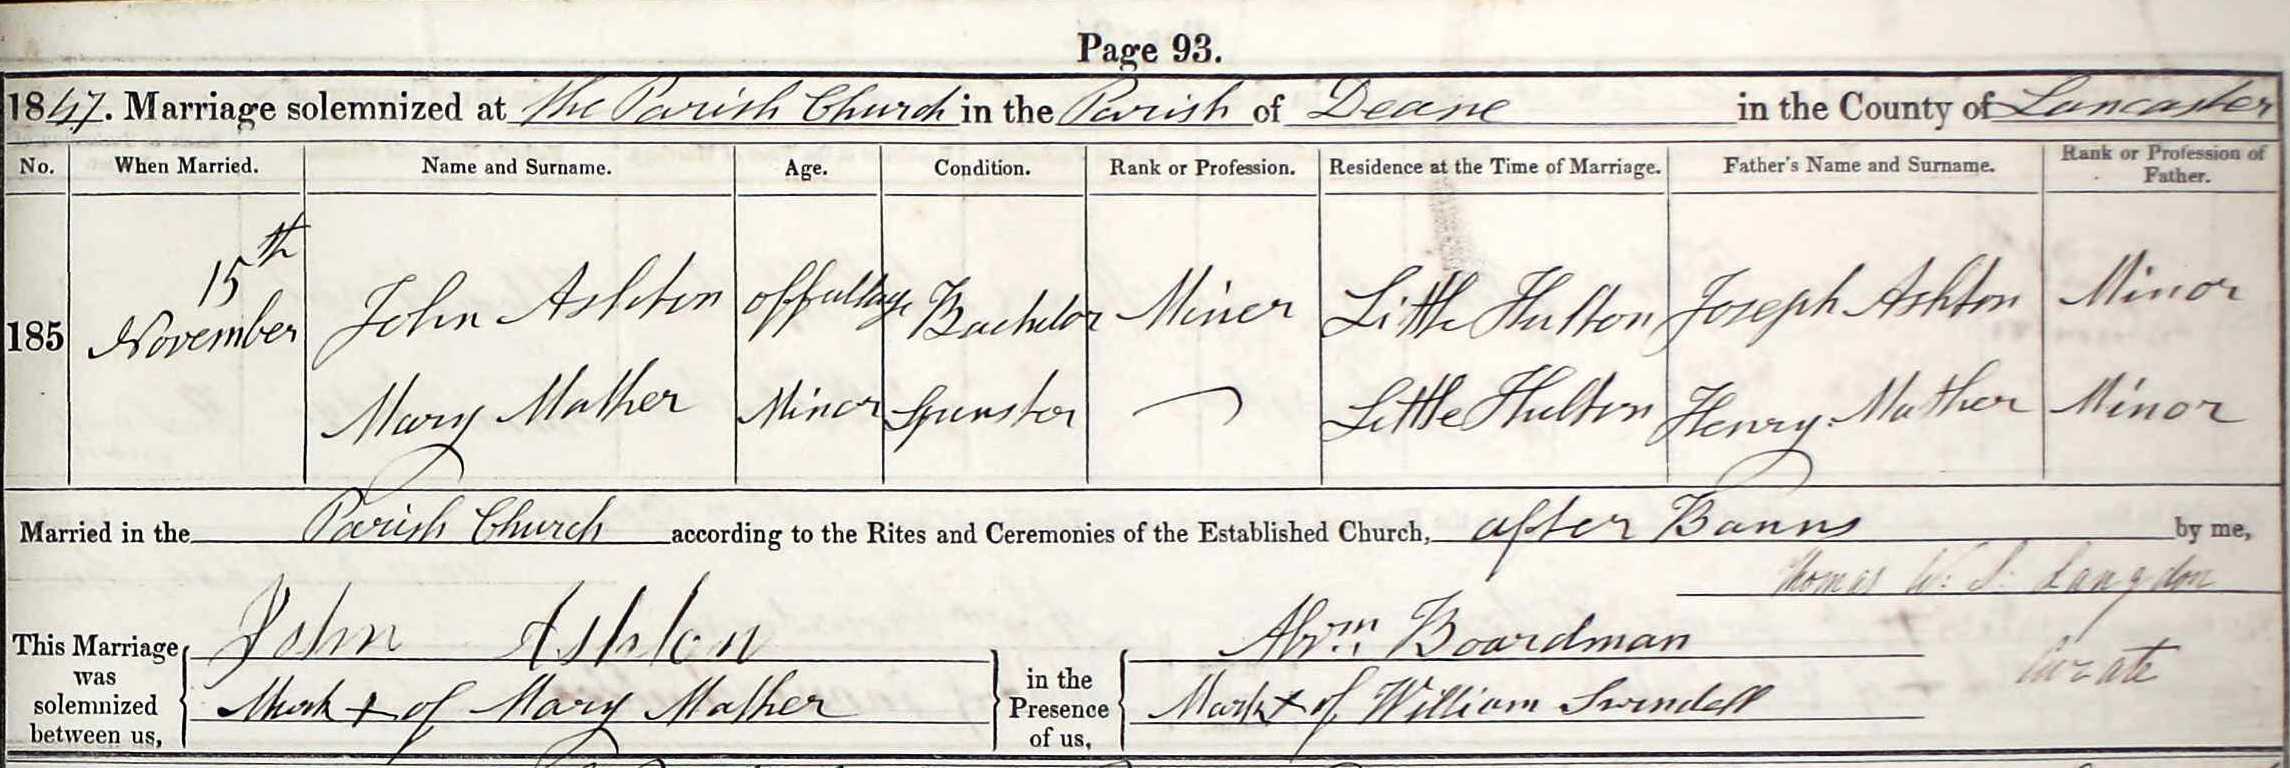 Page 93.
1847. Marriage solemnized at the Parish Church in the Parish of Deane in the County of Lancaster
No. When Married. Name and Surname. Age. Condition. Rank or Profession. Residence at the Time of Marriage. Father's Name and Surname. Rank or Profession of Father.
185 15th November John Ashton of full age Bachelor Miner Little Hulton Joseph Ashton Minor
Mary Mather Minor Spinster Little Hulton Henry Mather Minor
Married in the Parish Church according to the Rites and Ceremonies of the Established Church, after Banns by me,
Thomas W. S. Langdon
Curate
This Marriage was solemnized between us, John Ashton in the Presence of us, Abrm Boardman
Mark + of Mary Mather Mark + of William Swindell